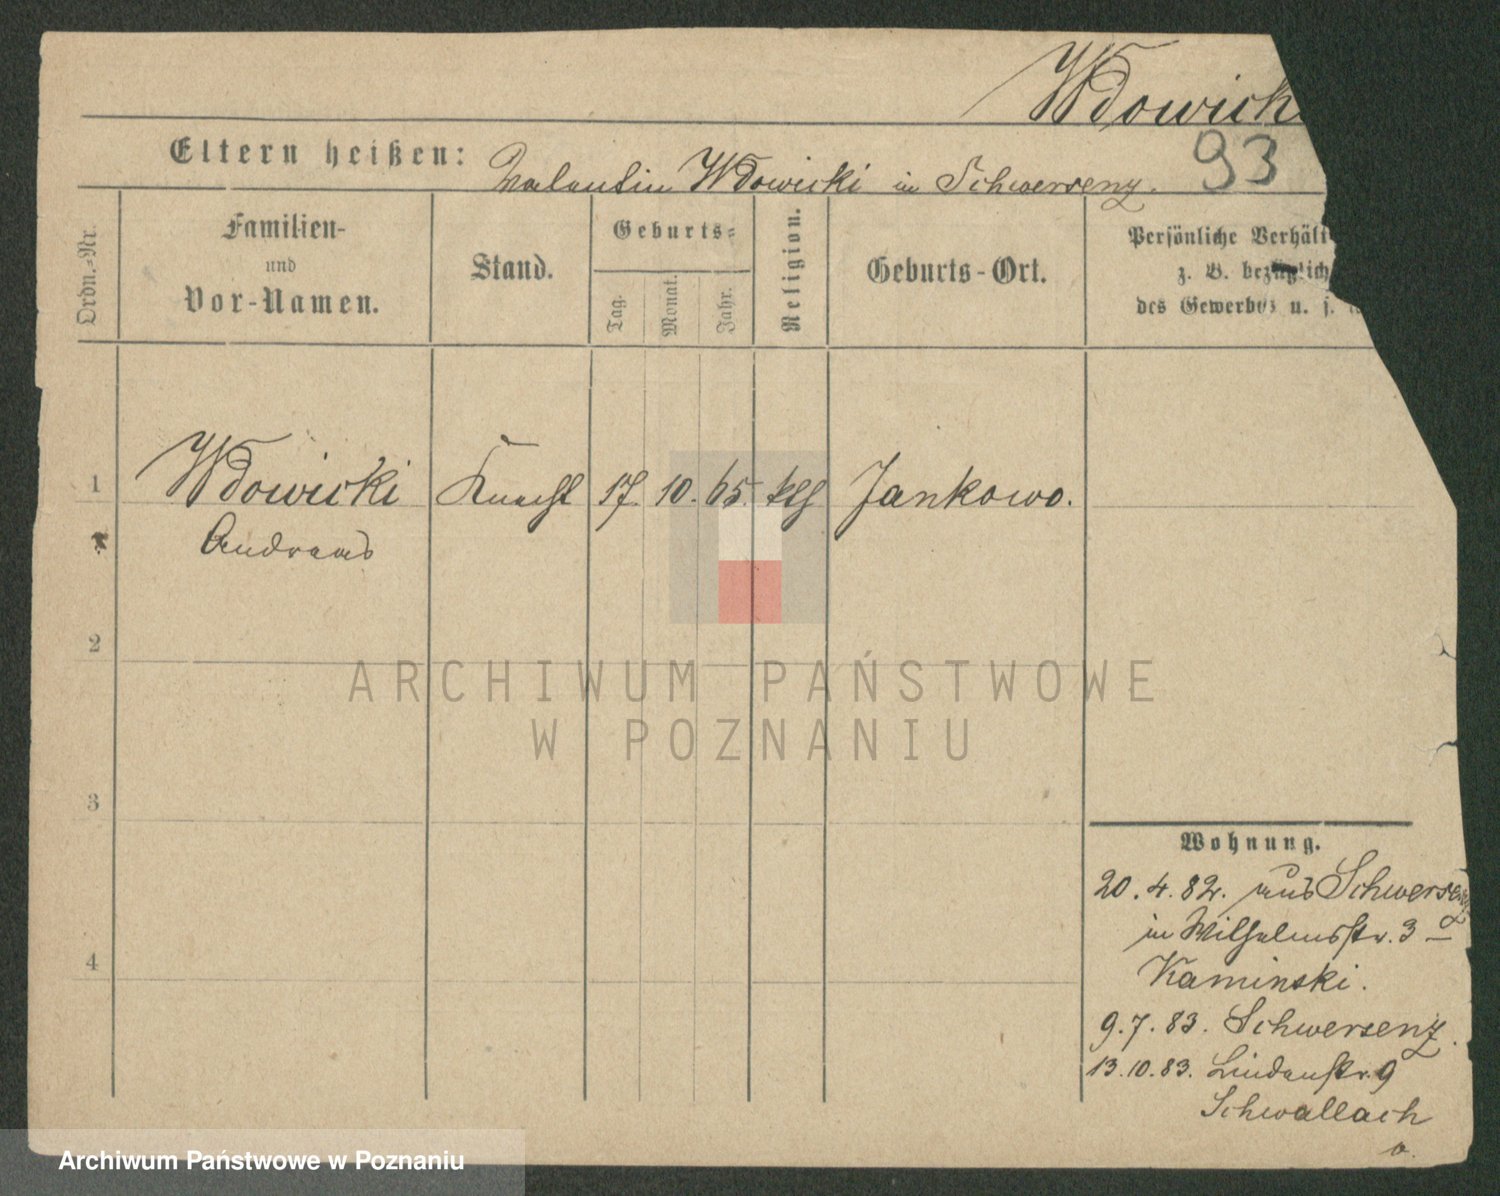 Wdowick
Eltern heißen: Valentin Wdowicki in Schwersenz.
93
Ordn.-Nr.
Familien-
und
Vor-Namen.
Stand.
Geburts-
Tag.
Monat.
Jahr.
Religion.
Geburts-Ort.
Persönliche Verhält
z. B. bezüglich
des Gewerbes u. s.
1 Wdowicki Knecht 17. 10. 65. kth Jankowo.
Andreas
2
3
4
Wohnung.
20. 4. 82. aus Schwersenz
in Wilhelmsstr. 3 –
Kaminski.
9. 7. 83. Schwersenz.
13. 10. 83. Lindenstr. 9
Schwallach
ARCHIWUM PAŃSTWOWE
W POZNANIU
Archiwum Państwowe w Poznaniu